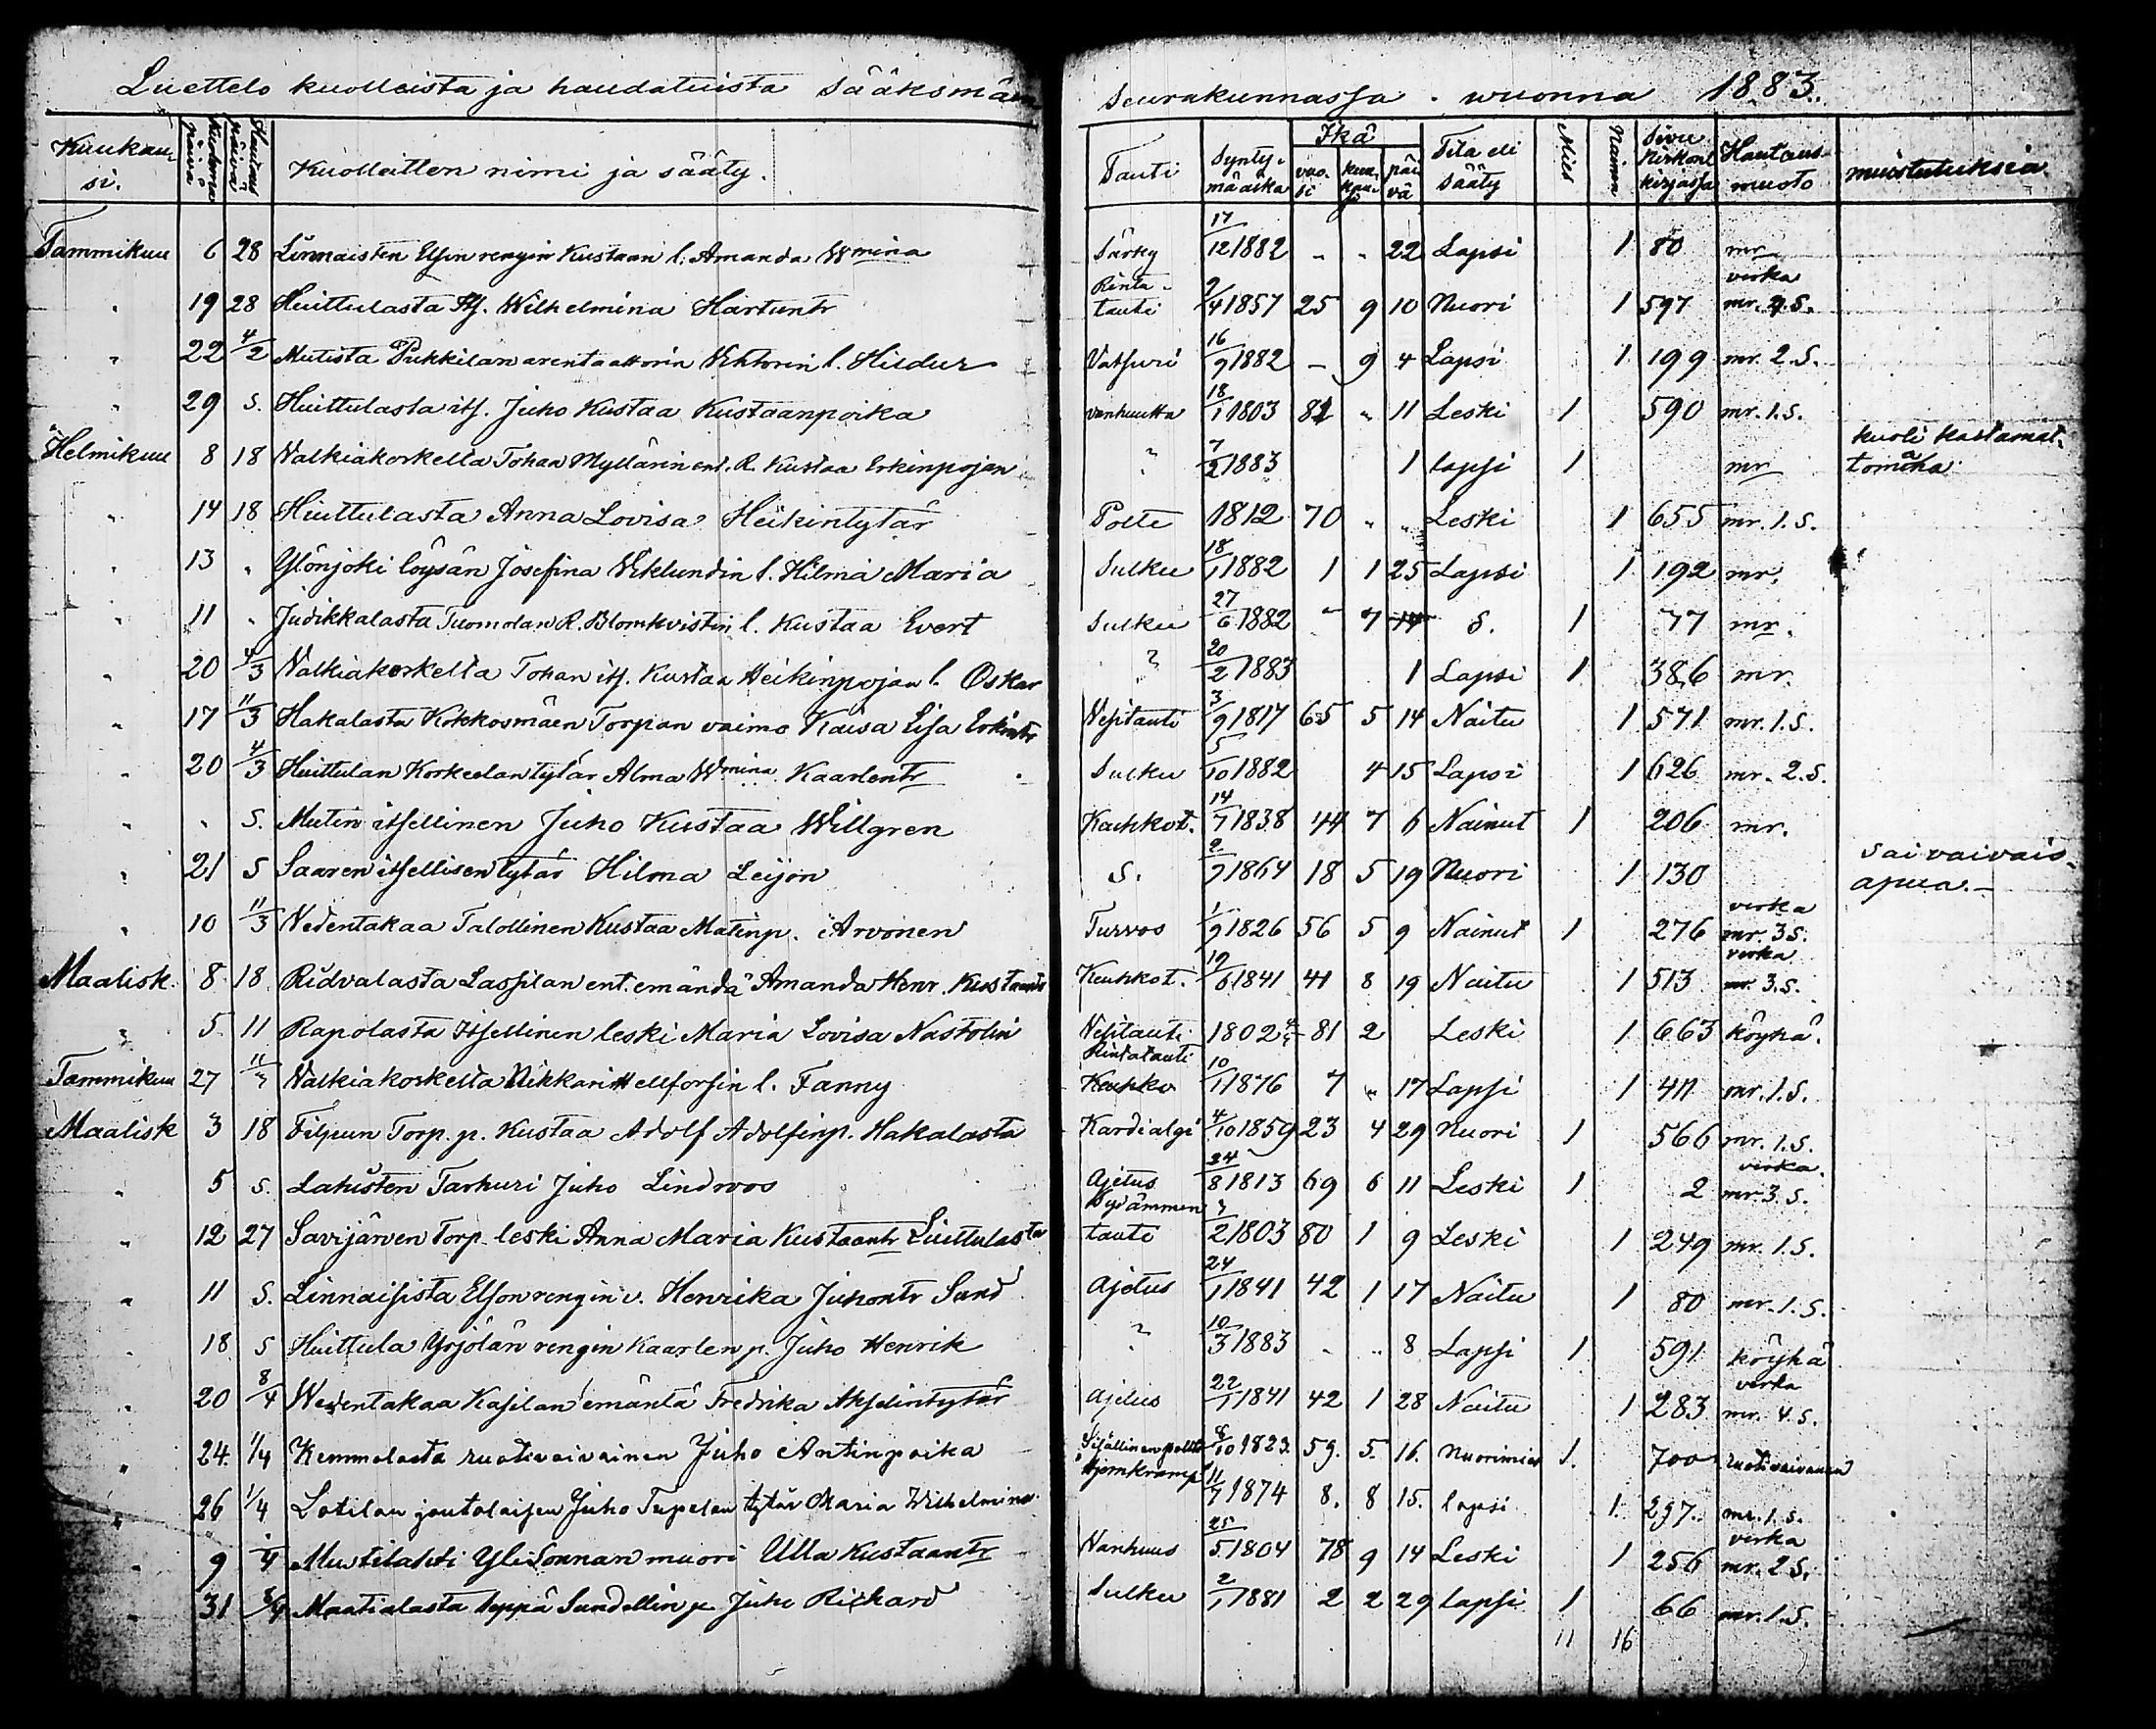 Luettelo kuolleista ja haudatuista Sääksmäen seurakunnassa . wuonna 1883.
Kuukausi. Kuolema päivä Hautaus päivä Kuolleitten nimi ja sääty. Tauti Syntymäaika Ikä vuosi kuukausi päivä Tila eli sääty Mies Nainen Sivu kirkonkirjassa Hautausmuoto muistutuksia
Tammikuu 6 28 Linnaisten Elson rengin Kustaan l. Amanda Wmina Särky 17/12 1882 - " 22 Lapsi 1 80 mr
" 19 28 Huittulasta Itf. Wilhelmina Hartuntr Rintatauti 9/4 1857 25 9 10 Nuori 1 597 virka mr. 4 S.
" 22 4/2 Mutista Pukkilan arentaattorin Vihtorin l. Hildur Vatsuri 16/9 1882 - 9 4 Lapsi 1 199 mr. 2 S.
" 29 S. Huittulasta itf. Juho Kustaa Kustaanpoika vanhuutta 18/1 1803 81 " 11 Leski 1 590 mr. 1. S.
Helmikuu 8 18 Walkiakoskelta Tohan Myllärin ent. R. Kustaa Erkinpojan ? 7/2 1883 1 lapsi 1 mr kuoli kastamattomana
" 14 18 Huittulasta Anna Lovisa Heikintytär Polte 1812 70 " " Leski 1 655 mr. 1. S.
" 13 " Ylönjoki löysän Josefina Wiklundin l. Hilma Maria Sulku 18/1 1882 1 1 25 Lapsi 1 192 mr.
" 11 " Judikkalasta Tuomolan R. Blomkvistin l. Kustaa Evert Sulku 27/6 1882 " 7 14 S. 1 77 mr.
" 20 4/3 Walkiakoskelta Tohan itf. Kustaa Heikinpojan l. Oskar ? 20/2 1883 1 Lapsi 1 386 mr.
" 17 11/3 Hakalasta Kokkosmäen Torpan vaimo Kaisa Lisa Erkintr Wesitauti 3/9 1817 65 5 14 Naitu 1 571 mr. 1. S.
" 20 4/3 Huittulan Korkeelan tytär Alma Wmina Kaarlentr Sulku 5/10 1882 4 15 Lapsi 1 626 mr. 2. S.
" " S. Mutin itsellinen Juho Kustaa Willgren Keuhkot. 14/7 1838 44 7 6 Nainut 1 206 mr.
" 21 S Saaren itsellisen tytär Hilma Leijon S. 2/9 1864 18 5 19 Nuori 1 130 sai vaivaisapua.-
" 10 11/3 Wedentakaa Talollinen Kustaa Matinp. Arvonen Turvos 1/9 1826 56 5 9 Nainut 1 276 virka mr. 3 S.
Maalisk. 8 18 Ridvalasta Lassilan ent. emändä Amanda Henr. Kustaantr Keuhkot. 19/6 1841 41 8 19 Naitu 1 513 virka mr. 3. S.
" 5 11 Rapolasta Itsellinen leski Maria Lovisa Nastolin Wesitauti 1802 81 2 Leski 1 663 köyhä.
Tammikuu 27 11/3 Walkiakoskelta Nikkari Hellforsin l. Fanny Rintatauti Keuhko 10/1 1876 7 " 17 Lapsi 1 411 mr. 1. S.
Maalisk 3 18 Filpun Torp. p. Kustaa Adolf Adolfinp. Hakalasta Kardialgi 4/10 1859 23 4 29 Nuori 1 566 mr. 1. S.
" 5 S. Lahisten Tarhuri Juho Lindroos Ajetus 24/8 1813 69 6 11 Leski 1 2 virka. mr. 3. S.
" 12 27 Savijärven Torp. leski Anna Maria Kustaantr Liuttulasta Sydämmen tauti 3/2 1803 80 1 9 Leski 1 249 mr. 1. S.
" 11 S. Linnaisista Elson rengin v. Henrika Juhontr Sand Ajetus 24/1 1841 42 1 17 Naitu 1 80 mr. 1. S.
" 18 S Huittula Yrjölän rengin Kaarlen p. Juho Henrik ? 10/3 1883 " " 8 Lapsi 1 591 köyhä
" 20 8/4 Wedentakaa Kasilan emäntä Fredrika Akselintytär Ajetus 22/1 1841 42 1 28 Naitu 1 283 virka mr. 4. S.
" 24. 1/4 Kemmolasta ruotivaivainen Juho Antinpoika Sisällinen poltto 8/10 1823 59. 5. 16. Nuorimies 1. 700 ruotivaivanen
" 26 1/4 Lotilan joutolaisen Juho Tupelan tytär Maria Wilhelmina Hjernkramp 11/7 1874 8. 8 15. lapsi 1. 297. mr. 1. S.
" 9 1/4 Mustilahti Yli Lonnan muori Ulla Kustaantr Wanhuus 25/5 1804 78 9 14 Leski 1 256 virka mr. 2 S.
" 31 8/4 Maatialasta seppä Sundellin p. Juho Richard Sulku 2/1 1881 2 2 29 lapsi 1 66 mr. 1. S.
11 16